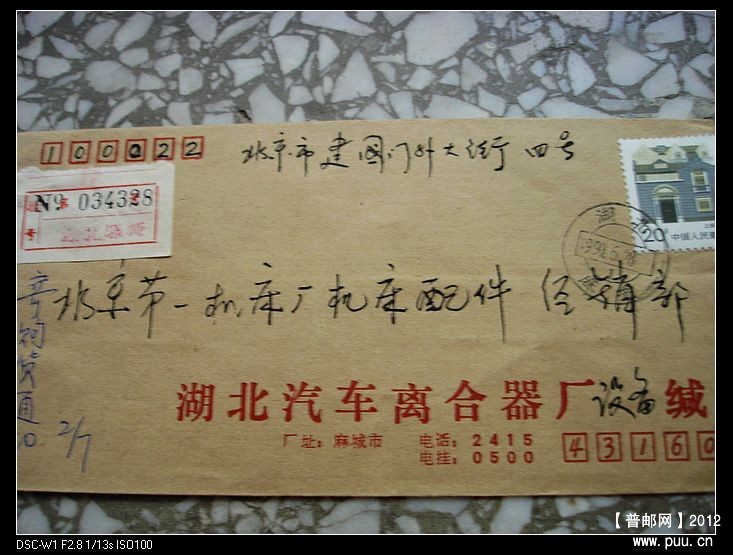 100022
北京市建国门外大街四号
№ 034328
20 中国人民
湖
北京第一机床厂机床配件经销部
湖北汽车离合器厂设备缄
厂址：麻城市 电话：2415 43160
电挂：0500
2/7
DSC-W1 F2.8 1/13s ISO100
【普邮网】2012
www.puu.cn